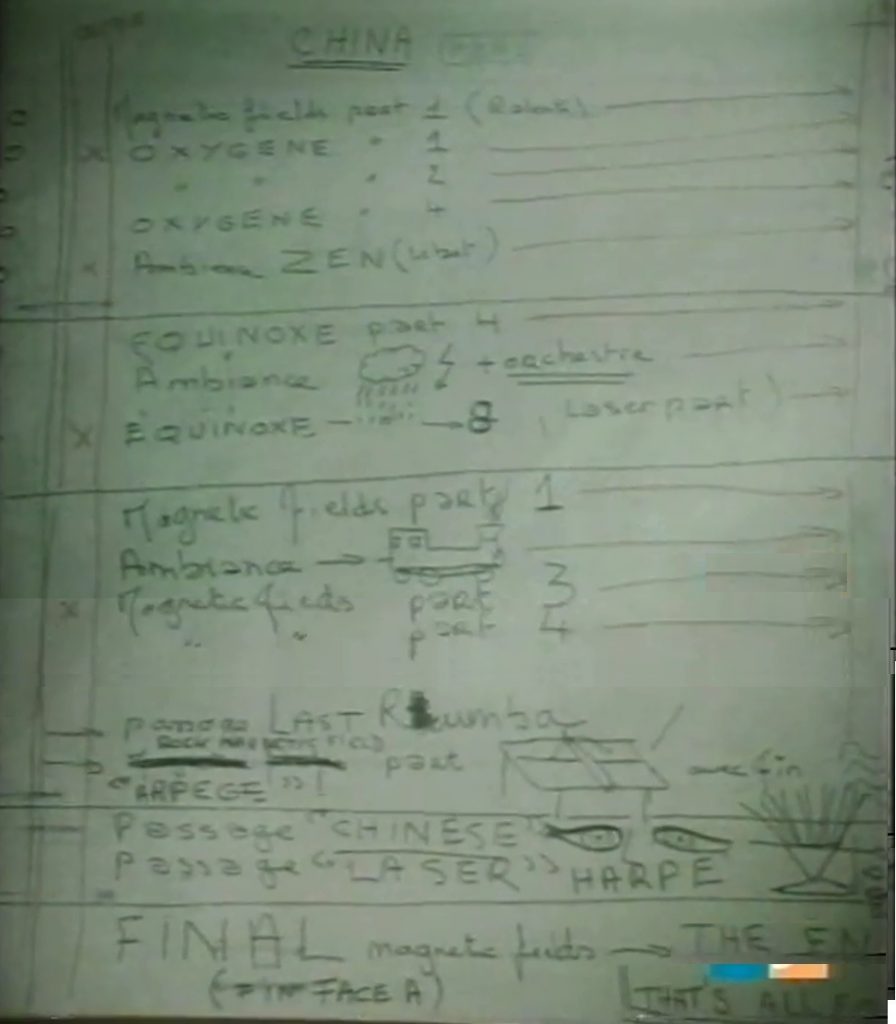 CHINA
Magnetic fields part 1
OXYGENE " 1
" " " 2
OXYGENE " 4
Ambiance ZEN
EQUINOXE part 4
Ambiance + orchestre
EQUINOXE 8 (Laser part)
Magnetic fields part 1
Ambiance
Magnetic fields part 3
" " part 4
LAST Rumba
ROCK MAGNETIC FIELD part avec fin
"ARPEGE"!
Passage "CHINESE"
Passage "LASER" HARPE
FINAL magnetic fields THE EN
FACE A)
THAT'S ALL